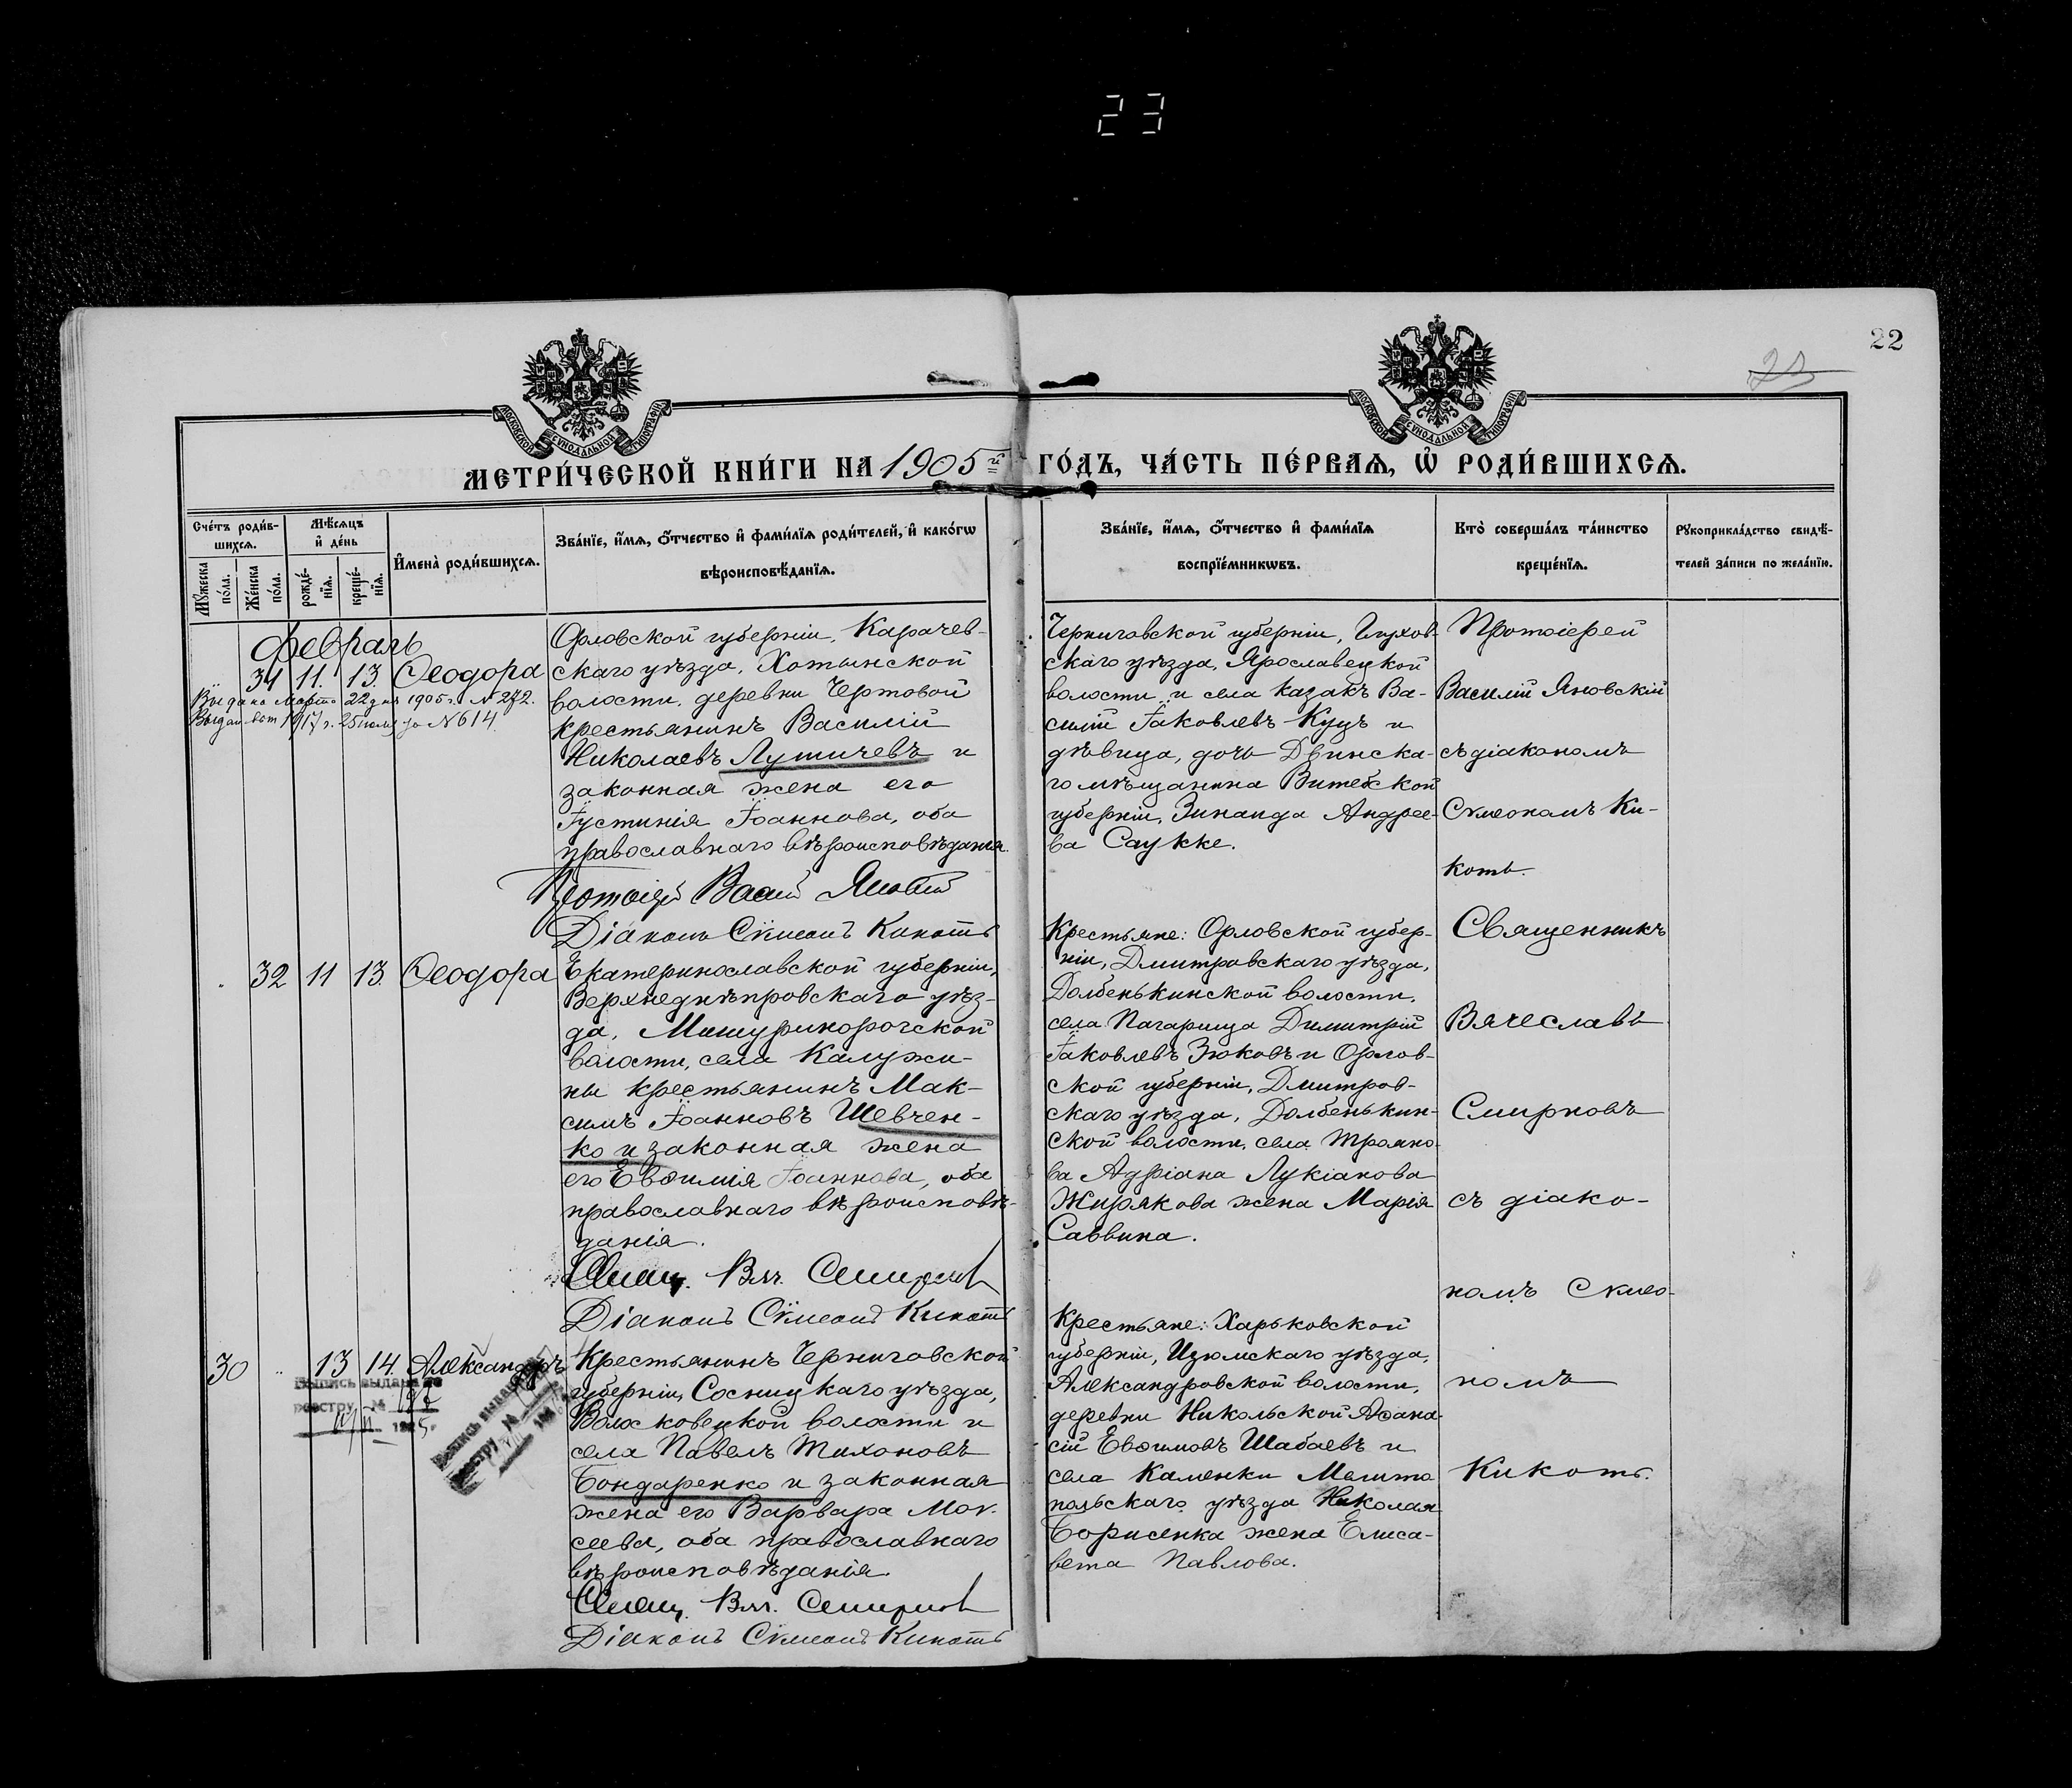 23
22
23
МОСКОВСКОЙ СѴНОДАЛЬНОЙ ТИПОГРАФІИ
МОСКОВСКОЙ СѴНОДАЛЬНОЙ ТИПОГРАФІИ
МЕТРИ́ЧЕСКОЙ КНИ́ГИ НА 1905й ГО́ДЪ, ЧА́СТЬ ПЕ́РВАѦ, Ѽ РОДИ́ВШИХСѦ.
Сче́тъ роди́в-
шихсѧ.
Мꙋ́жеска
по́ла.
Же́нска
по́ла.
Мѣ́сѧцъ
и҆ де́нь
рожде́-
нїѧ.
креще́-
нїѧ.
И҆мена̀ роди́вшихсѧ.
Зва́нїе, и҆́мѧ, ѻ҆́тчество и҆ фами́лїѧ роди́телей, и҆ како́гѡ
вѣроисповѣ́данїѧ.
Зва́нїе, и҆́мѧ, ѻ҆́тчество и҆ фами́лїѧ
воспрїе́мникѡвъ.
Кто̀ соверша́лъ та́инство
креще́нїѧ.
Рꙋкоприкла́дство свидѣ́-
телей за́писи по жела́нїю.
Февраль
31 11. 13. Ѳеодора
Выдано Марта 22 дня 1905 г. № 272.
1917 г. 25 за № 614.
Орловской губерніи, Карачев-
скаго уѣзда, Хотынской
волости, деревни Чертовой
крестьянинъ Василій
Николаевъ Лутичевъ и
законная жена его
Іустинія Іоаннова, оба
православнаго вѣроисповѣданія.
Протоіерей Василій Яновскій
Діаконъ Сѵмеонъ Кикоть
Черниговской губерніи, Глухов-
скаго уѣзда, Ярославецкой
волости и села казакъ Ва-
силій Іаковлевъ Куцъ и
дѣвица, дочь Двинска-
го мѣщанина Витебской
губерніи, Зинаида Андрее-
ва Саукке.
Протоіерей
Василій Яновскій
съ діакономъ
Сѵмеономъ Ки-
коть.
32 11 13. Ѳеодора
Екатеринославской губерніи,
Верхнеднѣпровскаго уѣз-
да, Мишуринорогской
волости, села Калужи-
ны крестьянинъ Мак-
симъ Іоанновъ Шевчен-
ко и законная жена
его Евѳимія Іоаннова, оба
православнаго вѣроисповѣ-
данія.
Свящ. Вяч. Смирновъ
Діаконъ Сѵмеонъ Кикоть
Крестьяне: Орловской губер-
ніи, Дмитровскаго уѣзда,
Долбенькинской волости,
села Пагарища Димитрій
Іаковлевъ Зюковъ и Орлов-
ской губерніи, Дмитров-
скаго уѣзда, Долбенькин-
ской волости, села Трояно-
ва Адріана Лукіанова
Жирякова жена Марія
Саввина.
Священникъ
Вячеславъ
Смирновъ
съ діако-
номъ Сѵмео-
номъ
Кикоть.
30 13 14 Александръ
Выпись выдана по
реестру №
Выпись выдана
реестру №
Крестьянинъ Черниговской
губерніи, Сосницкаго уѣзда,
Волосковецкой волости и
села Павелъ Тихоновъ
Бондаренко и законная
жена его Варвара Мои-
сеева, оба православнаго
вѣроисповѣданія.
Свящ. Вяч. Смирновъ
Діаконъ Сѵмеонъ Кикоть
Крестьяне: Харьковской
губерніи, Изюмскаго уѣзда,
Александровской волости,
деревни Никольской Аѳана-
сій Евѳимовъ Шабаевъ и
села Каменки Мелито
польскаго уѣзда Николая
Борисенка жена Елиса-
вета Павлова.